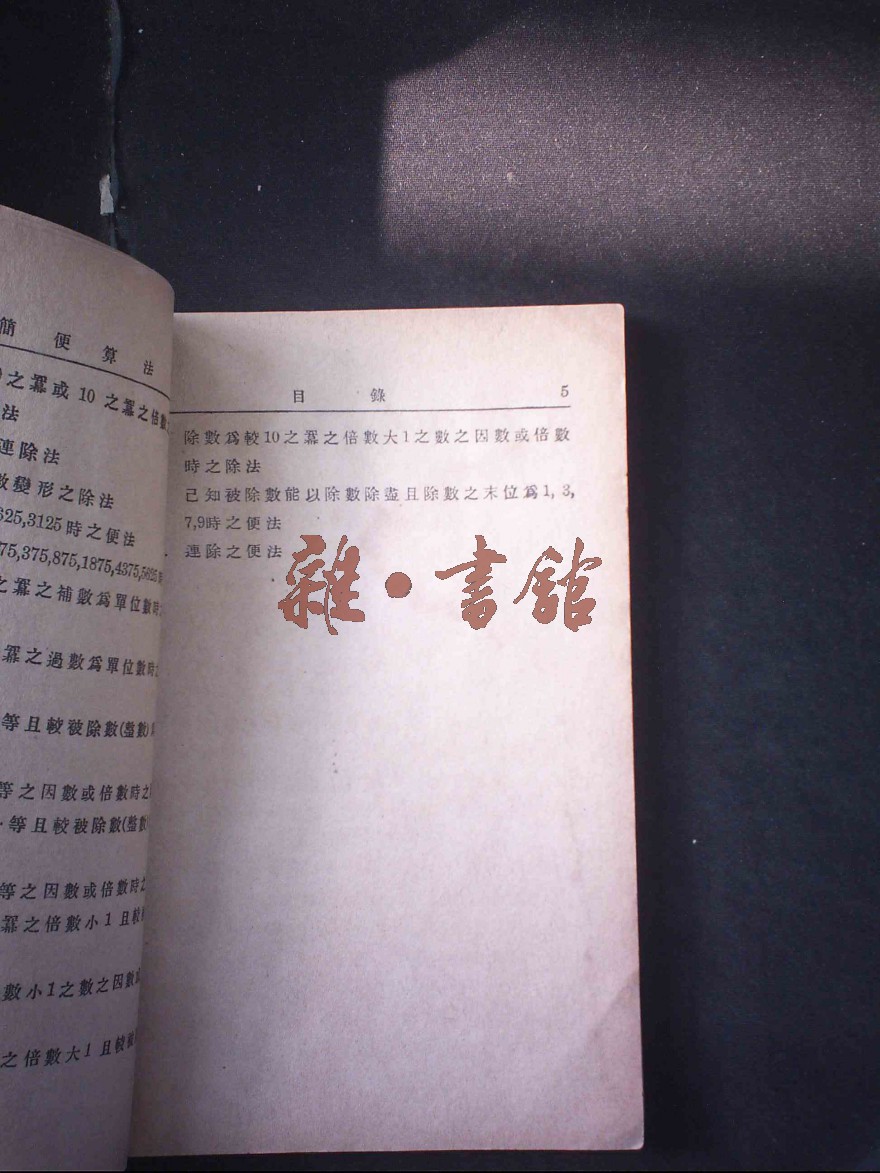 簡便算法
之羃或 10 之羃之倍數
法
連除法
數變形之除法
625,3125時之便法
75,375,875,1875,4375,5625
之羃之補數爲單位數時
羃之過數爲單位數時
等且較被除數(整數)
等之因數或倍數時之
等且較被除數(整數
等之因數或倍數時之
羃之倍數小1且較
數小1之數之因數
之倍數大1且較被
目錄 5
除數爲較10之羃之倍數大1之數之因數或倍數
時之除法
已知被除數能以除數除盡且除數之末位爲1,3,
7,9時之便法
連除之便法
雜·書館